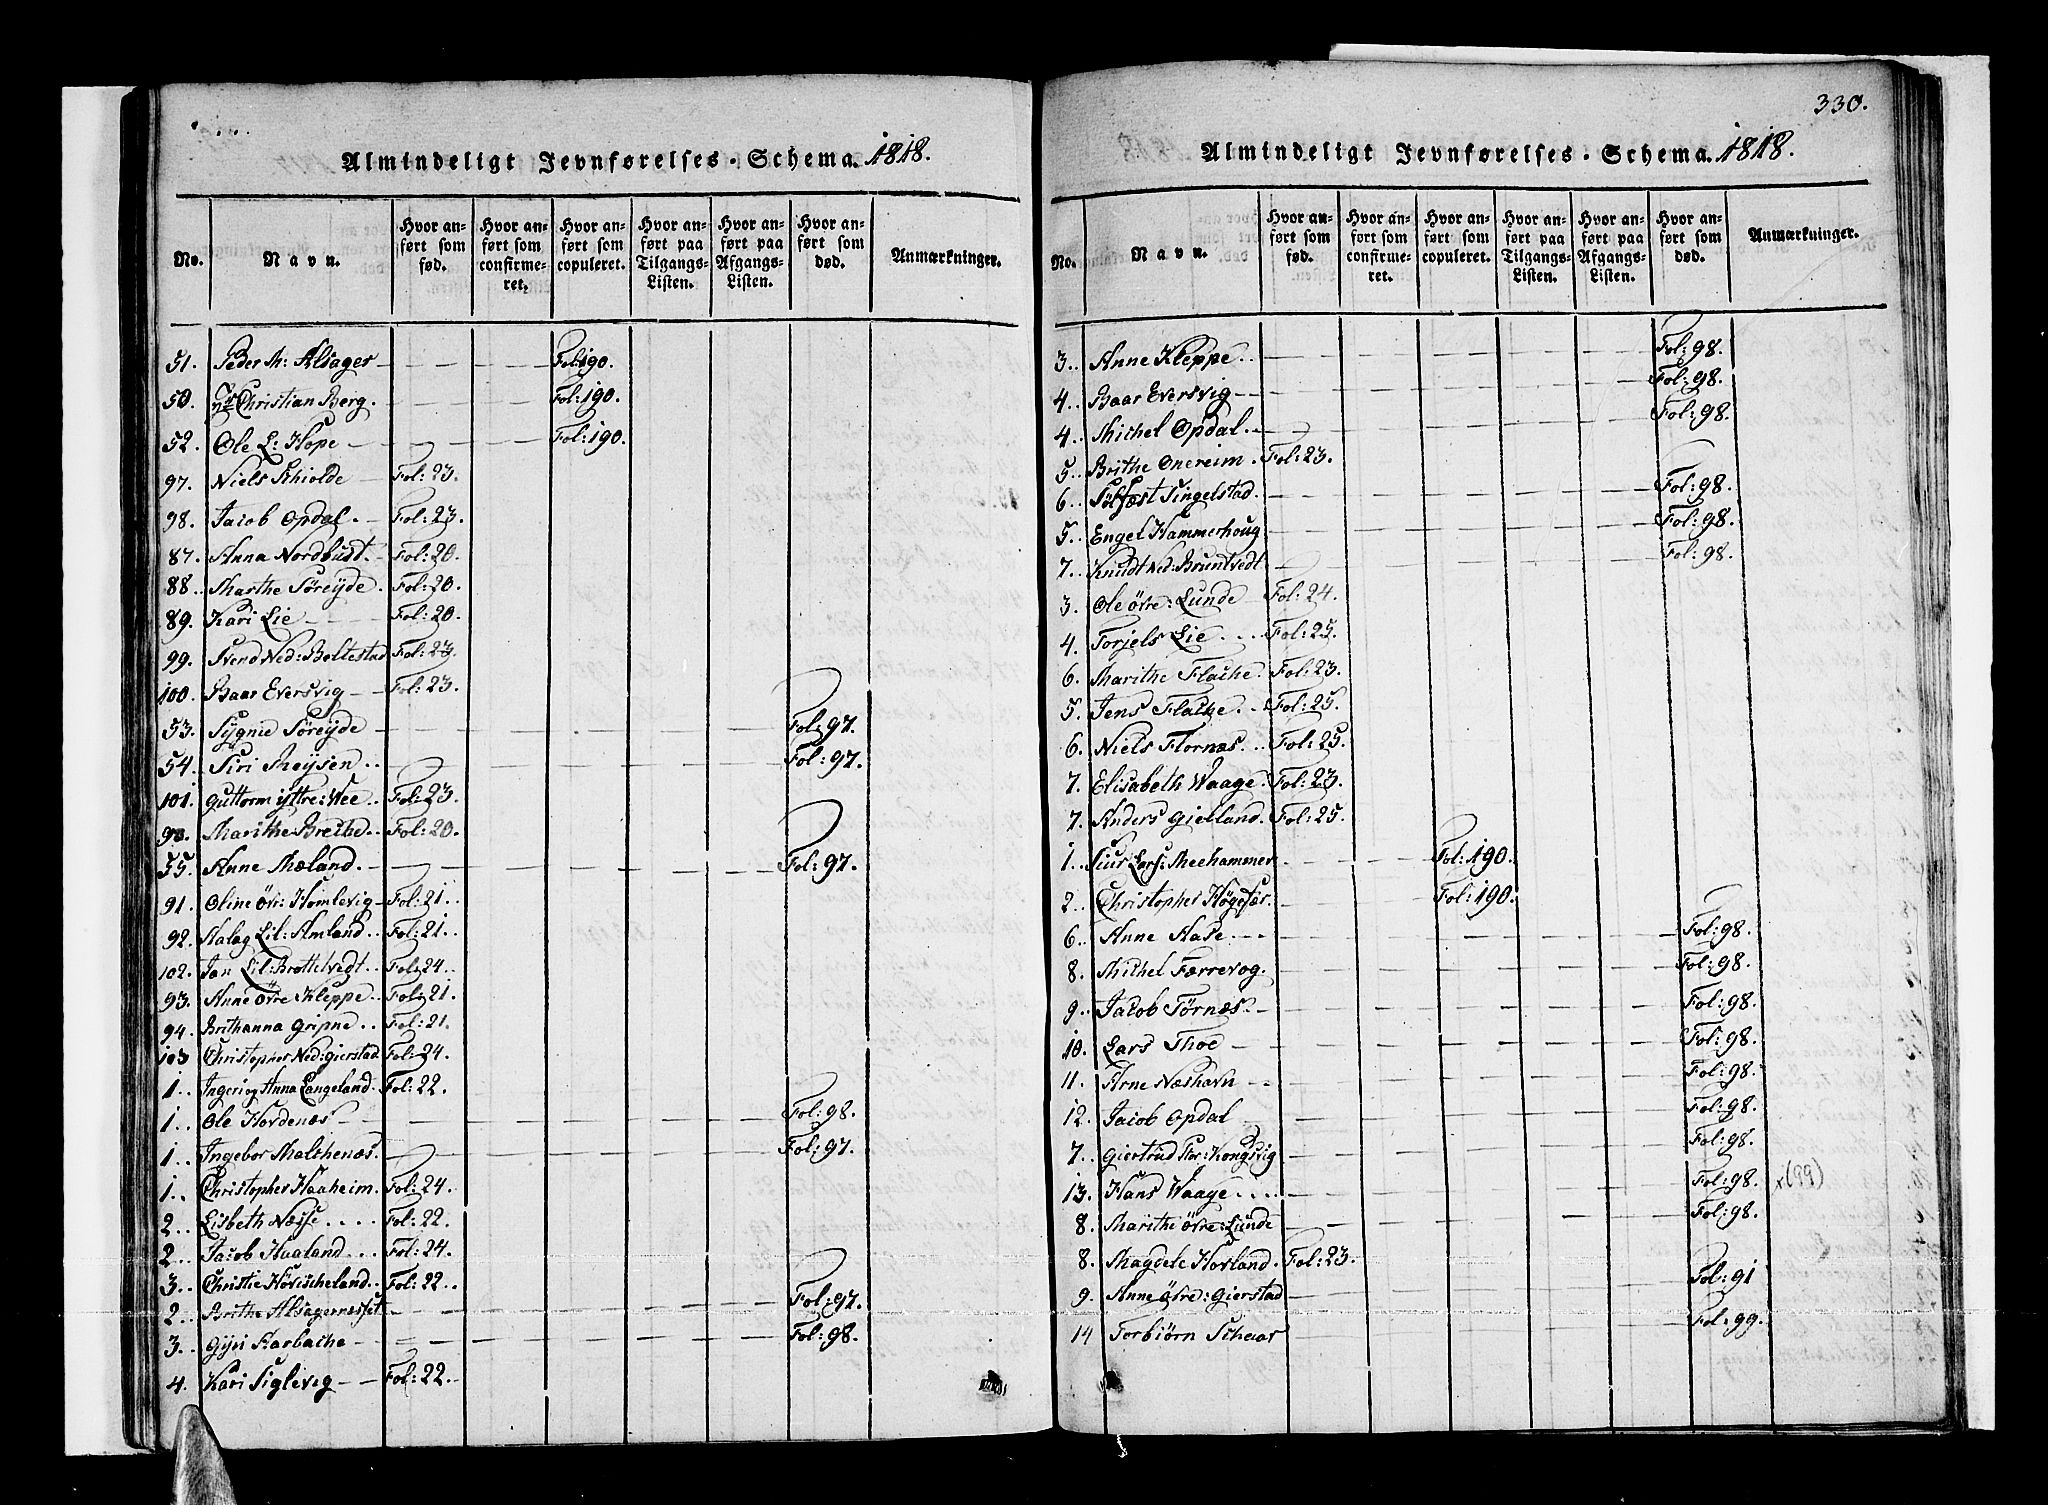 Almindeligt Jevnførelses-Schema. 1818.
No. Navn. Hvor anført som fød. Hvor anført som confirmeret. Hvor anført som copuleret. Hvor anført paa Tilgangs-Listen. Hvor anført paa Afgangs-Listen. Hvor anført som død. Anmærkninger.
51. Peder M: Alsager Fol:190.
50. Christian Berg. Fol:190.
52. Ole L: Hope Fol:190.
97. Niels Schiolde Fol:23.
98. Jacob Opdal. Fol:23.
87. Anna Nordbust. Fol:20.
88. Marthe Søreyde. Fol:20.
89. Kari Lie Fol:20.
99. Svend Ned: Boltestad Fol:23.
100. Baar Eversvig Fol:23.
53. Sygnie Søreyde Fol:97.
54. Siri Røysen Fol:97.
101. Guttorm yttre: Wee Fol:23.
90. Marithe Breche Fol:20.
55. Anne Mæland Fol:97.
91. Oline Øvr: Homlevig Fol:21.
92. Aalag Lil: Amland Fol:21.
102. Jan Lil: Brottetvedt Fol:24.
93. Anne Øvre Kleppe Fol:21.
94. Brithanna Gripne Fol:21.
103 Christopher Ned: Gierstad Fol:24.
1. Ingeri og Anna Langeland Fol:22.
1. Ole Hordenæs Fol:98.
1. Ingebor Malchenæs. Fol:97.
1. Christopher Haaheim. Fol:24.
2. Lisbeth Næsse Fol:22.
2. Jacob Haaland Fol:24.
3. Christie Hövischeland Fol:22.
2. Brithe Alsagernesset Fol:97.
3. Gyri Skarbache Fol:98.
4. Kari Siglevig Fol:22.
330.
Almindeligt Jevnførelses-Schema. 1818.
No. Navn. Hvor anført som fød. Hvor anført som confirmeret. Hvor anført som copuleret. Hvor anført paa Tilgangs-Listen. Hvor anført paa Afgangs-Listen. Hvor anført som død. Anmærkninger.
3. Anne Kleppe Fol:98.
4. Baar Eversvig Fol:98.
4. Michel Opdal Fol:98.
5. Brithe Onereim Fol:23.
6. Singelstad. Fol:98.
5. Engel Hammerhoug Fol:98.
7. Knudt Ned: Bruntvedt Fol:98.
3. Ole Øvre: Lunde Fol:24.
4. Torjels Lie Fol:25.
6. Marithe Flache Fol:23.
5. Jens Flache Fol:25.
6. Niels Flornæs Fol:25.
7. Elisabeth Waage Fol:23.
7. Anders Gielland Fol:25.
1. Siur Lars: Meehammer Fol:190.
2. Christopher Høgefær. Fol:190.
6. Anne Aase Fol:98.
8. Michel Færrevog. Fol:98.
9. Jacob Tørnæs Fol:98.
10. Lars Thoe Fol:98.
11. Arne Næshavn Fol:98.
12. Jacob Opdal Fol:98.
7. Giertrud Stor: Kongsvig Fol:98.
13. Hans Waage Fol:98. x(99)
8. Marithe Øvre: Lunde Fol:98.
8. Magdele Hovland Fol:23.
9. Anne Øvre: Gierstad Fol:91
14 Torbiørn Schaar Fol:99.